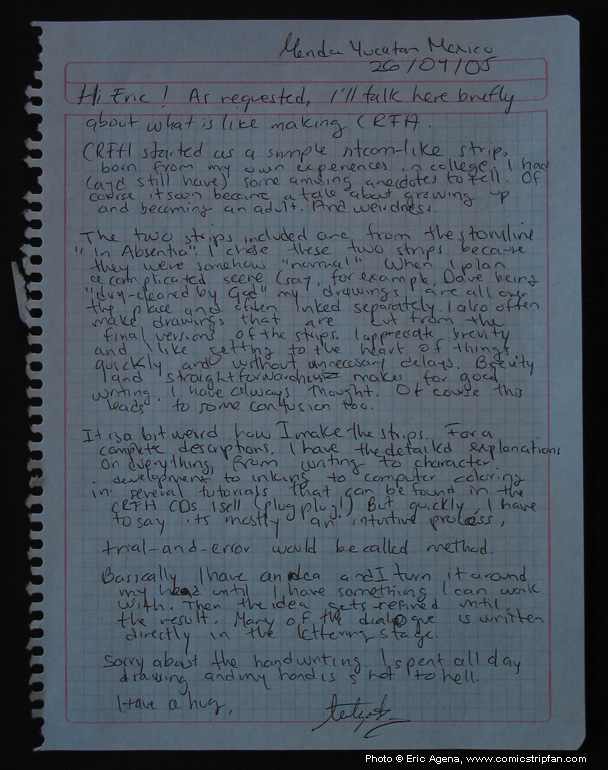 Merida Yucatan Mexico
26/04/05
Hi Eric! As requested, I'll talk here briefly
about what is like making CRFH.
CRFH started as a simple sitcom-like strip,
born from my own experiences in college. I had
(and still have) some amusing anecdotes to tell. Of
course it soon became a tale about growing up
and becoming an adult. And weirdness.
The two strips included are from the storyline
"In Absentia". I chose these two strips because
they were somehow "normal". When I plan
a complicated scene (say, for example, Dave being
" by God" my drawings are all over
the place and often inked separately. I also often
make drawings that are cut from the
final versions of the strips. I appreciate brevity
and I like getting to the heart of things
quickly and without unnecessary delays. Brevity
and straightforwardness makes for good
writing. I have always thought. Of course this
leads to some confusion too.
It is a bit weird how I make the strips. For a
complete descriptions, I have the detailed explanations
on everything, from writing to character
development to inking to computer coloring
in several tutorials that can be found in the
CRFH CDs I sell (plug plug!) But quickly, I have
to say its mostly an intuitive process,
trial-and-error would be called method.
Basically I have an idea and I turn it around
my head until I have something I can work
with. Then the idea gets refined until
the result. Many of the dialogue is written
directly in the lettering stage.
Sorry about the handwriting. I spent all day
drawing and my hand is shot to hell.
Have a hug,
Photo © Eric Agena, www.comicstripfan.com